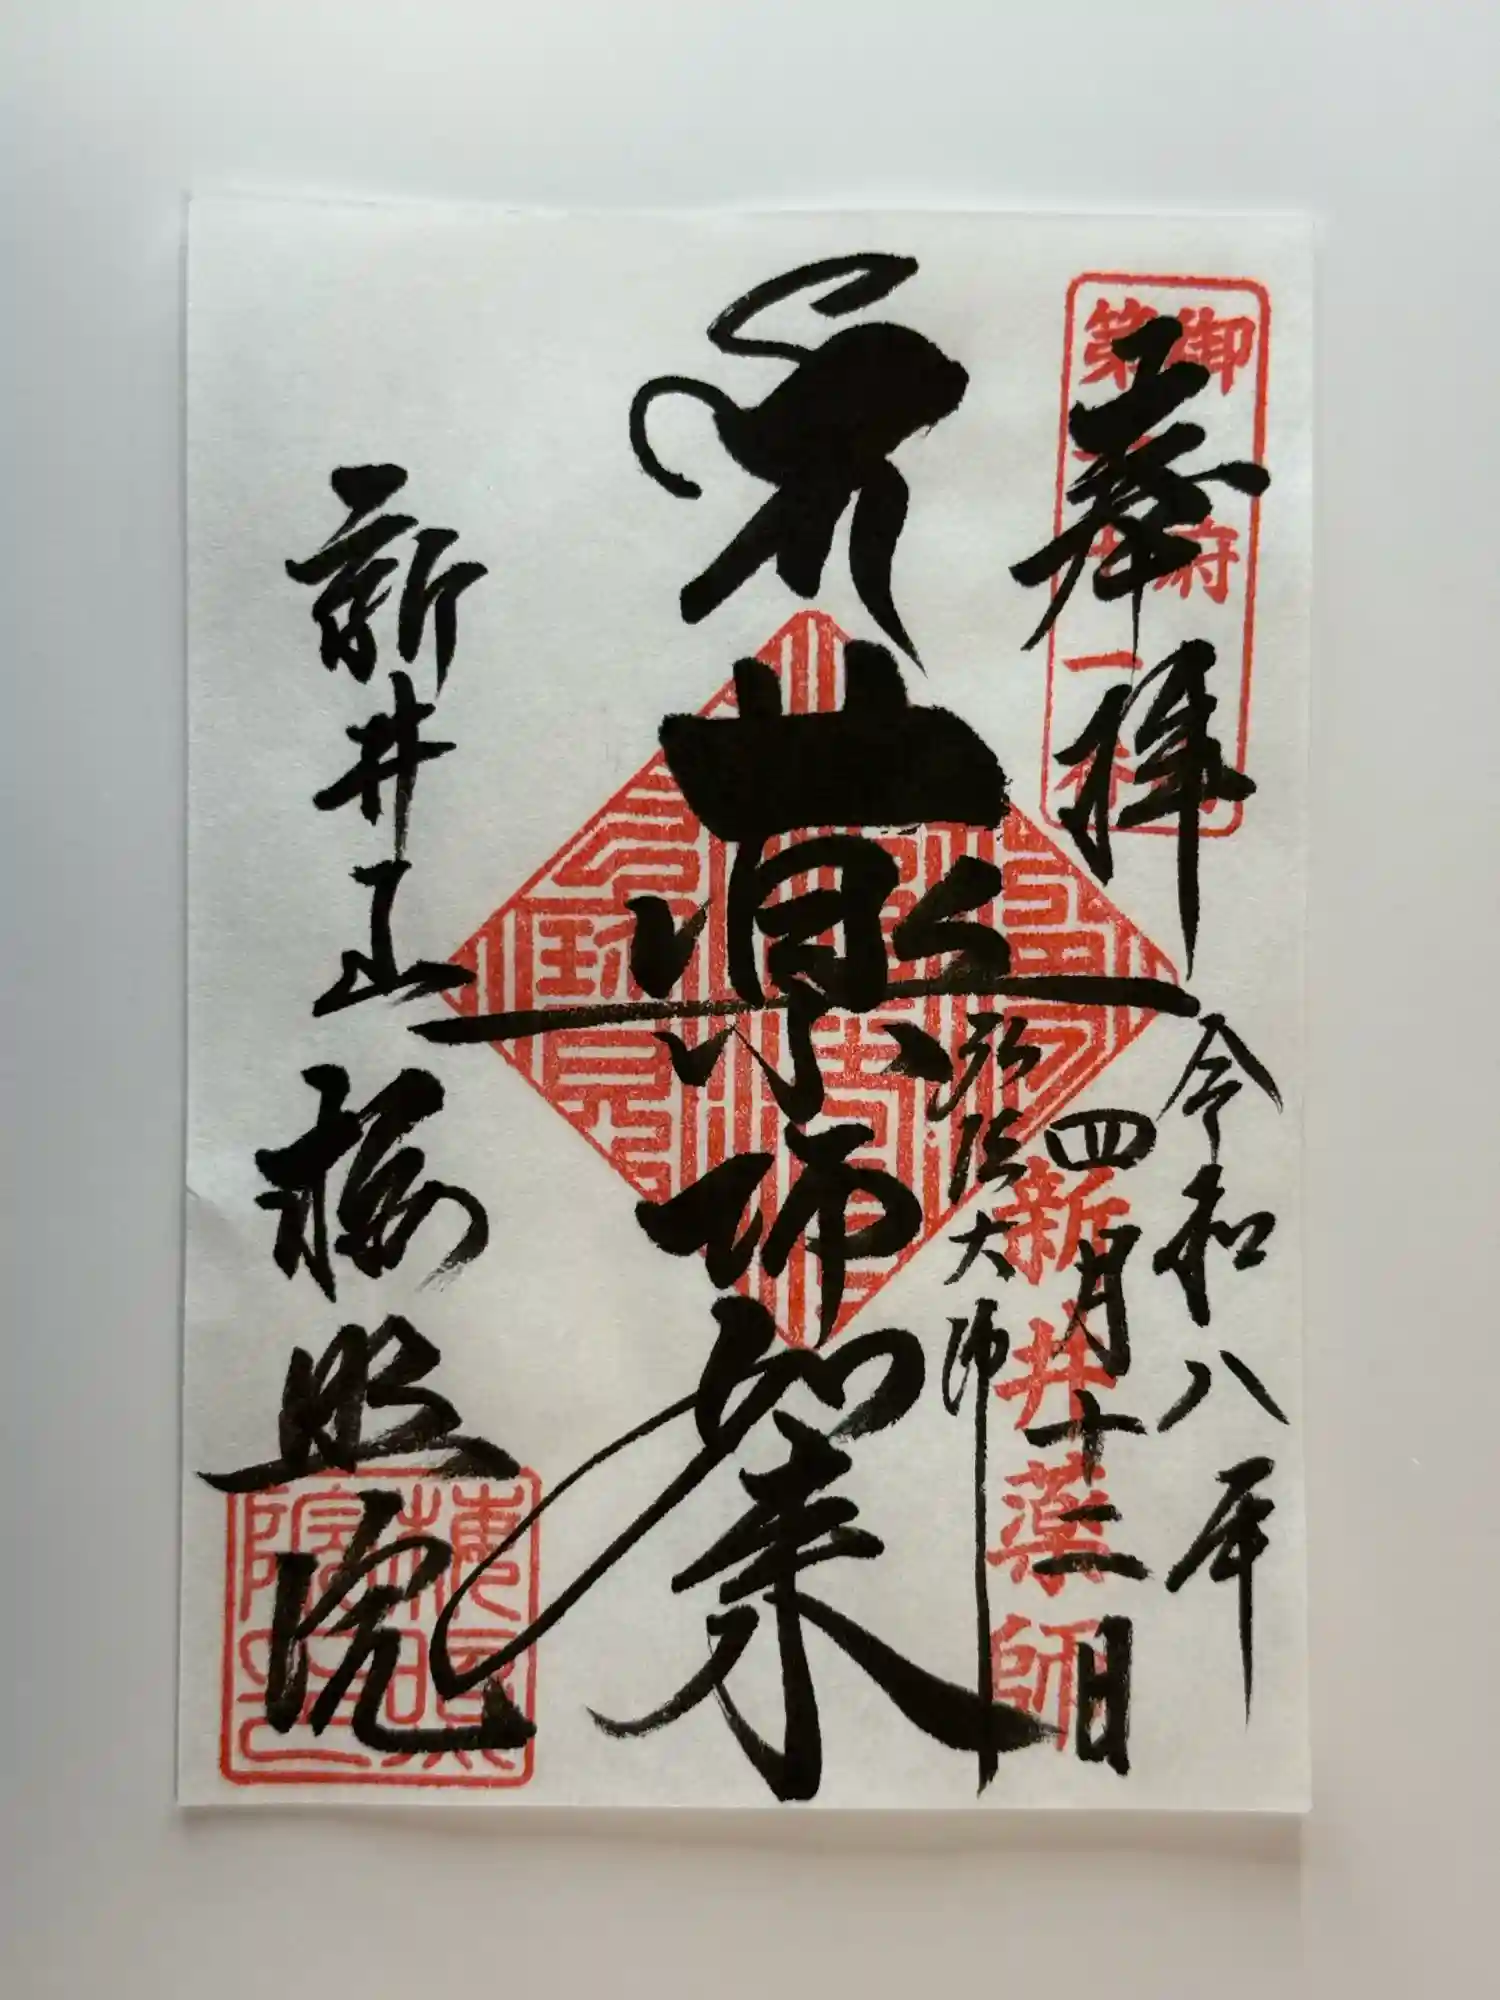 奉拝
令和八年
四月十二日
弘法大師
薬師如来
新井山
梅照院
御府
第
新井薬師